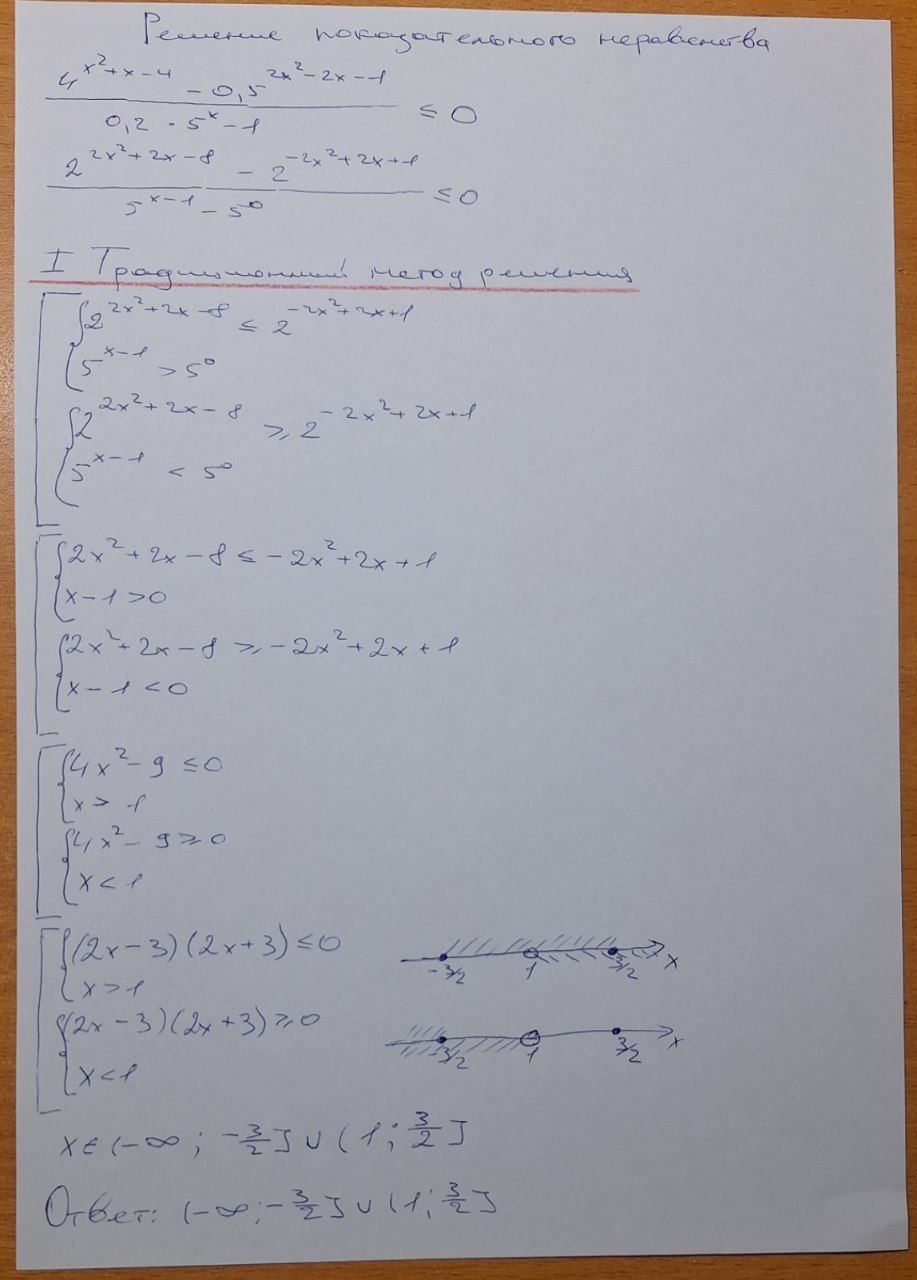 Решение показательного неравенства
4^{x²+x-4} - 0,5^{2x²-2x-1}
0,2 · 5^x - 1
≤ 0
2^{2x²+2x-8} - 2^{-2x²+2x+1}
5^{x-1} - 5^0
≤ 0
I Традиционный метод решения
2^{2x²+2x-8} ≤ 2^{-2x²+2x+1}
5^{x-1} > 5^0
2^{2x²+2x-8} ≥ 2^{-2x²+2x+1}
5^{x-1} < 5^0
2x²+2x-8 ≤ -2x²+2x+1
x-1>0
2x²+2x-8 ≥ -2x²+2x+1
x-1<0
4x²-9 ≤ 0
x > 1
4x²-9 ≥ 0
x < 1
(2x-3)(2x+3) ≤ 0
x > 1
-3/2 1 3/2 x
(2x-3)(2x+3) ≥ 0
x < 1
-3/2 1 3/2 x
x ∈ (-∞; -3/2] ∪ (1; 3/2]
Ответ: (-∞; -3/2] ∪ (1; 3/2]